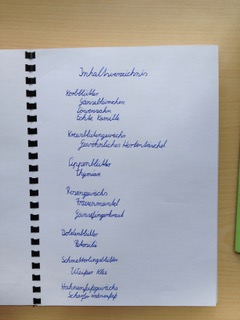 Inhaltsverzeichnis
Korbblütler
Gänseblümchen
Löwenzahn
Echte Kamille
Kreuzblütengewächs
Gewöhnliches Hirtentäschel
Lippenblütler
Thymian
Rosengewächs
Frauenmantel
Gänsefingerkraut
Doldenblütler
Petersilie
Schmetterlingsblütler
Weißer Klee
Hahnenfußgewächs
Scharfer Hahnenfuß